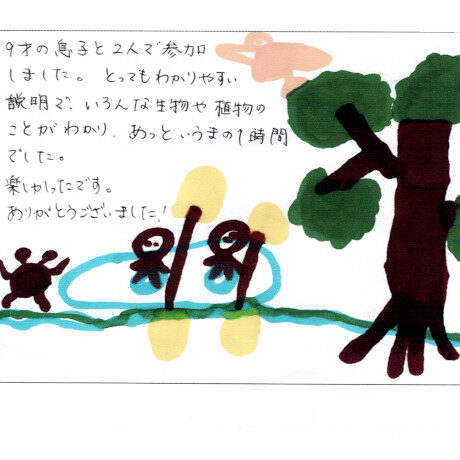 9才の息子と2人で参加
しました。とってもわかりやすい
説明で、いろんな生物や植物の
ことがわかり、あっというまの1時間
でした。
楽しかったです。
ありがとうございました!